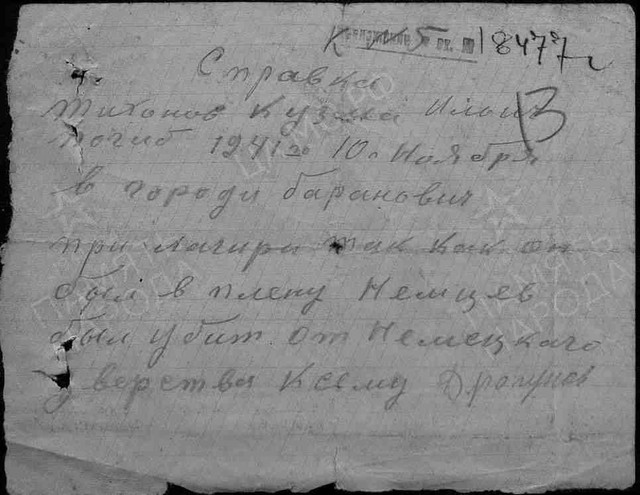 18477
Справка
Тихонов Кузьма Ильич
погиб 1941 го 10 го Ноября
в городи баранович
при лагири так как он
был в плену Немцев
был убит от Немецкаго
зверства Ксему
ПАМЯТЬ НАРОДА